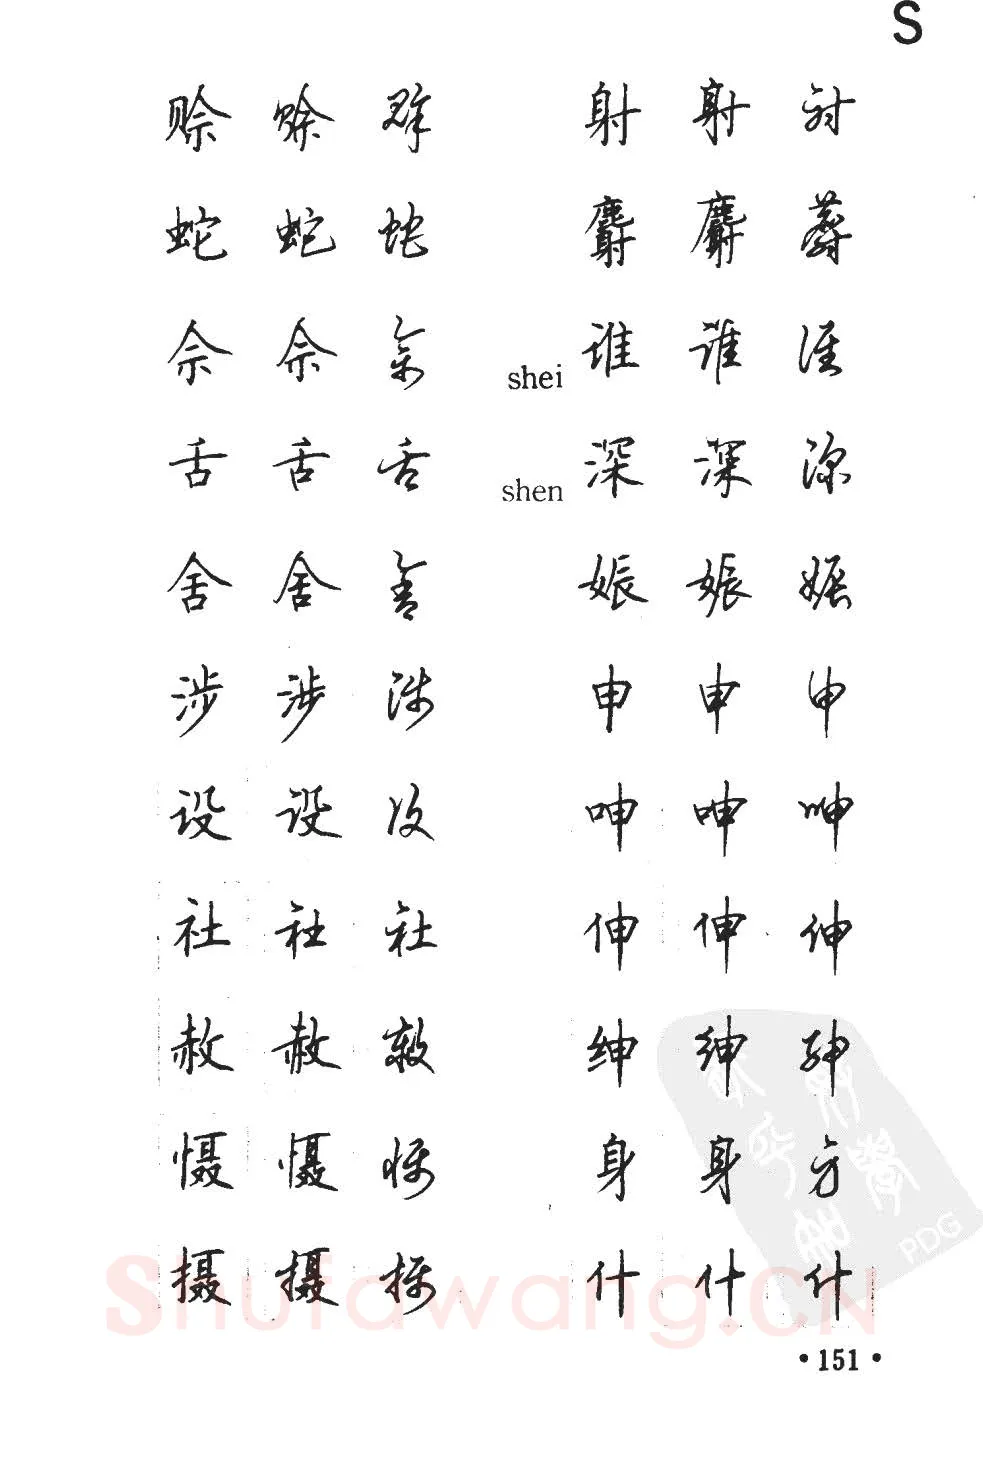 S
赊 赊 赊 射 射 射
蛇 蛇 蛇 麝 麝 麝
佘 佘 佘 shei 谁 谁 谁
舌 舌 舌 shen 深 深 深
舍 舍 舍 娠 娠 娠
涉 涉 涉 申 申 申
设 设 设 呻 呻 呻
社 社 社 伸 伸 伸
赦 赦 赦 绅 绅 绅
慑 慑 慑 身 身 身
摄 摄 摄 什 什 什
PDG
Shufawang.CN
·151·